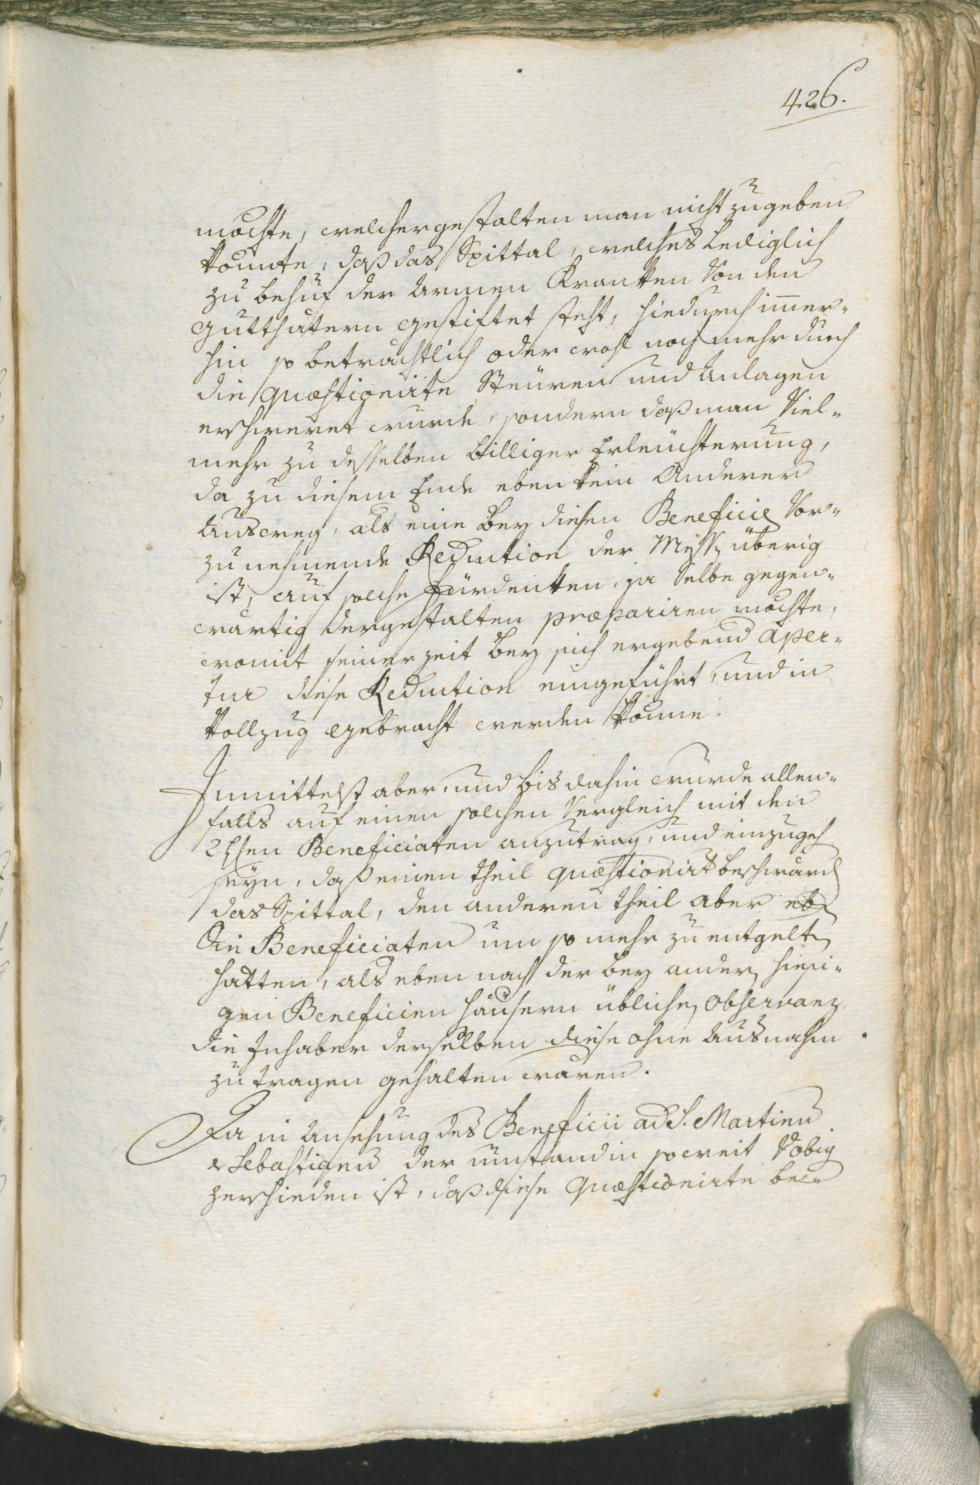 426.
möchte, welchergestalten man nicht zugeben
könnte, daß das Spittal, welches Lediglich
zu behuf der Armen Kranken Von den
Gutthätern gestiftet steht, hiedurch immer-
hin so beträchtlich oder wohl noch mehr durch
die Quæstionirte Steüren und Anlagen
erschweret wurde, sondern daß man Viel-
mehr zu desselben billiger Erleüchterung,
da zu diesem Ende eben kein Anderer
Ausweg, als eine bey diesen Beneficie Vor-
zu nehmende Reduction der Mess überig
ist, auf solche fürdenken, ja Selbe gegen-
wärtig dergestalten præpariren möchte,
womit seiner zeit bey sich ergebend Aper-
tur diese Reduction eingeführt, und in
Vollzug gebracht werden könne.
Inmittelst aber, und bis dahin wurde allen-
falls auf einen solchen Vergleich mit den
Beneficiaten anzutrag, und einzugeh
seyn, daß einen theil quæstionirt beschwärd
das Spittal, den anderen theil aber
die Beneficiaten um so mehr zu entgelt
hätten, als eben nach der bey ander hiesi-
gen Beneficien häusern übliche Observanz
die Inhaber derselben diese ohne Ausnahm
zu tragen gehalten wären.
Da in Ansehung des Beneficii ad S. Martinu
& Sebastianu der umstand in so weit Vobig
verschieden ist, daß diese Quæstionirte be-